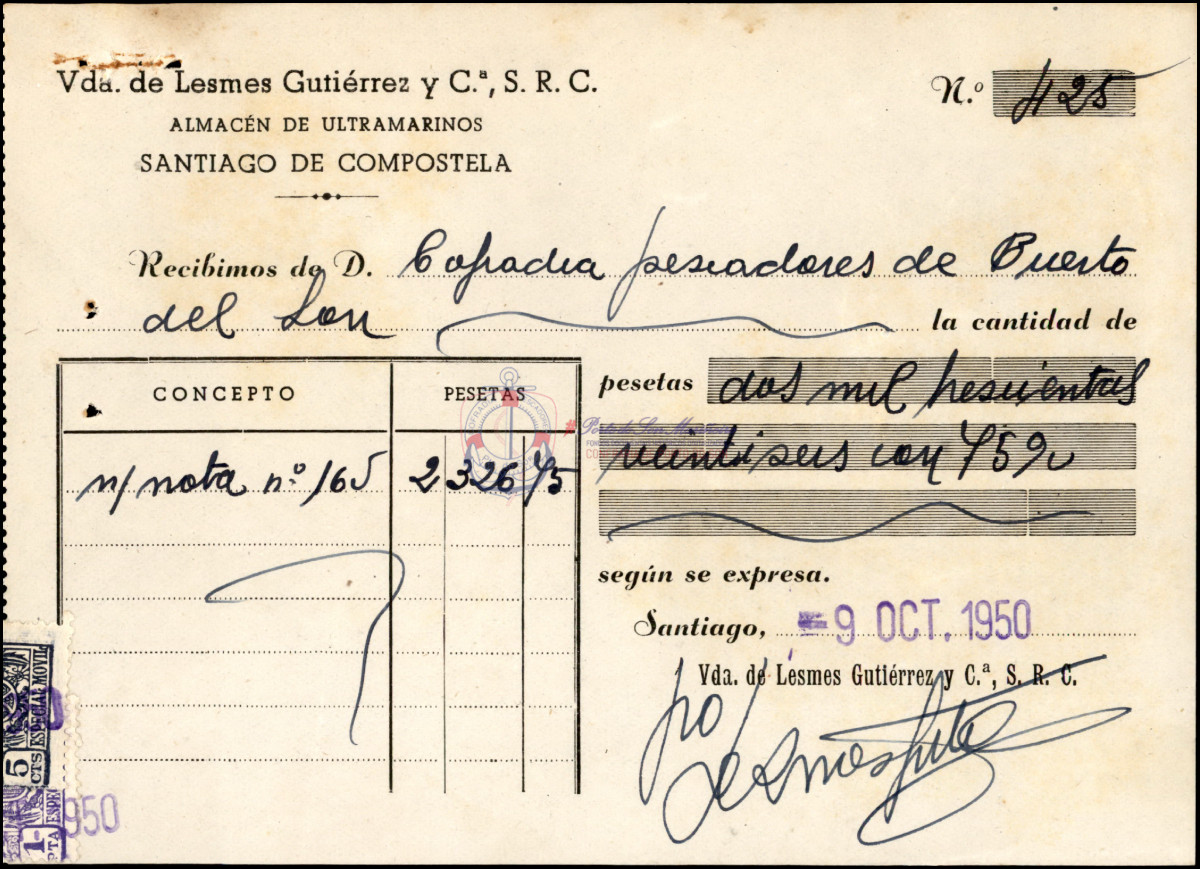 Vda. de Lesmes Gutiérrez y C.ª, S. R. C.
N.º 425
ALMACÉN DE ULTRAMARINOS
SANTIAGO DE COMPOSTELA
Recibimos de D. Cofradia pescadores de Puerto
del Son la cantidad de
pesetas dos mil trescientas
veintiseis con 75 %
CONCEPTO PESETAS
n/ nota nº 165 2 326 75
según se expresa.
Santiago, 9 OCT. 1950
Vda. de Lesmes Gutiérrez y C.ª, S. R. C.
po/
Lesmes Gut
5 CTS ESPECIAL MOVIL
1- PTA ESPE
950